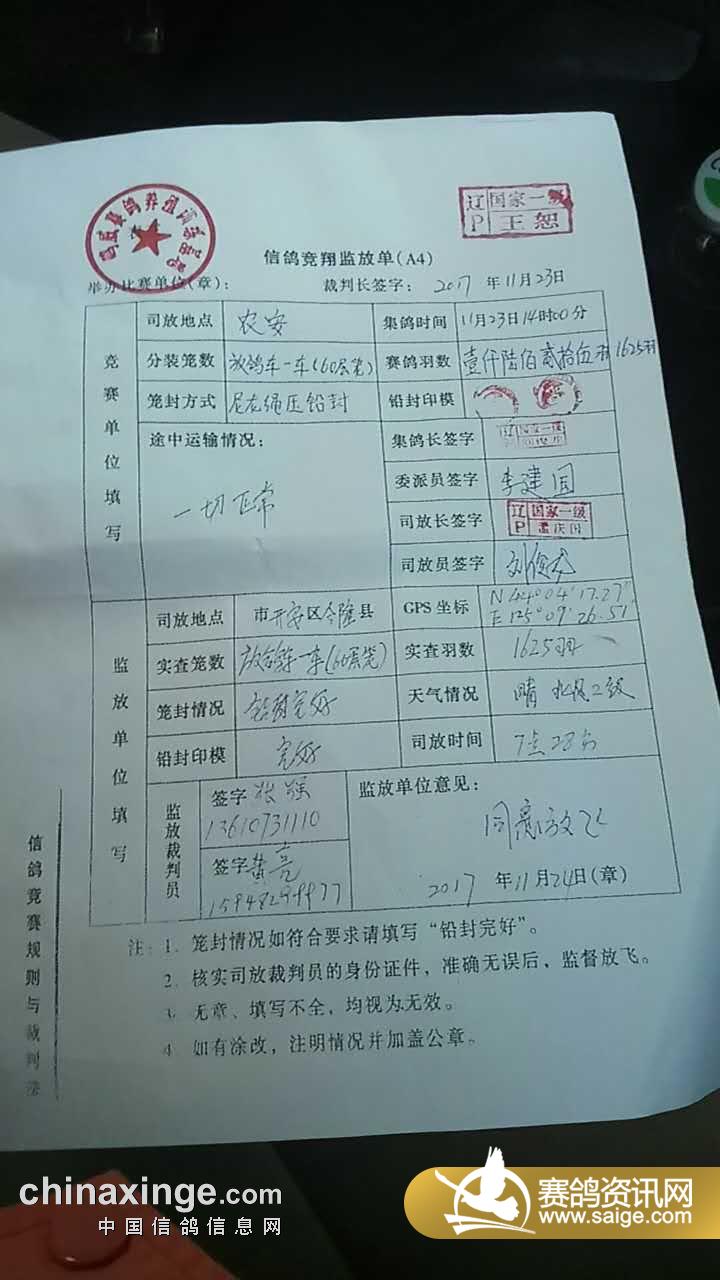 辽 国家一级
P 王恕
信鸽竞翔监放单(A4)
举办比赛单位(章): 裁判长签字: 2017 年11月23日
竞赛单位填写
司放地点 农安 集鸽时间 11月23日14时00分
分装笼数 放鸽车一车(60层笼) 赛鸽羽数 壹仟陆佰贰拾伍羽 1625羽
笼封方式 尼龙绳压铅封 铅封印模
途中运输情况: 集鸽长签字 辽 国家一级
一切正常 委派员签字 李建国
司放长签字 辽 国家一级 P
司放员签字
监放单位填写
司放地点 市 区 县 GPS 坐标 N 44°04′17.27″
E 125°09′26.51″
实查笼数 放鸽车一车(60层笼) 实查羽数 1625羽
笼封情况 铅封完好 天气情况 晴 二级
铅封印模 完好 司放时间 7点28分
监放裁判员 签字 张强 监放单位意见:
13610731110
同意放飞
签字 黄亮
2017 年11月24日(章)
注: 1. 笼封情况如符合要求请填写“铅封完好”。
2. 核实司放裁判员的身份证件，准确无误后，监督放飞。
3. 无章、填写不全，均视为无效。
4. 如有涂改，注明情况并加盖公章。
信鸽竞赛规则与裁判法
chinaxinge.com
中国信鸽信息网
赛鸽资讯网
www.saige.com